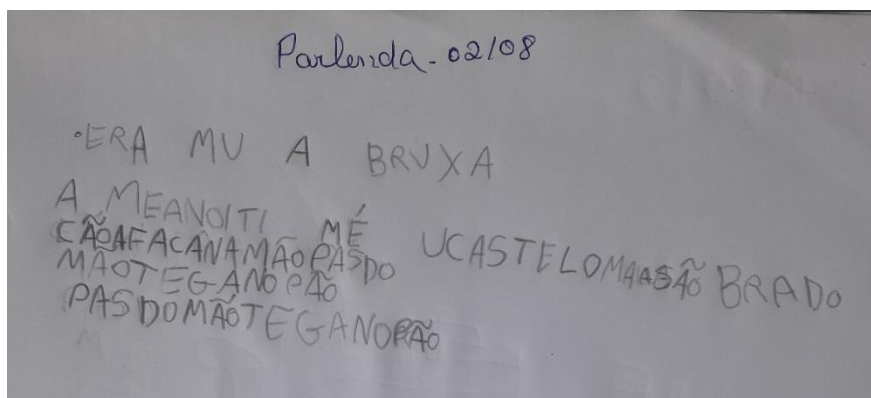 Parlenda - 02/08
•ERA MU A BRUXA
A MEANOITI MÉ UCASTELOMAASÃO BRADO
CÃOAFACANAMÃO PASDO
MÃOTEGANOPÃO
PASDOMÃOTEGANOPÃO